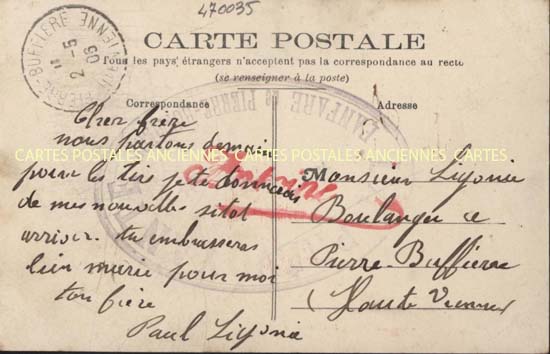 470035
PIERRE-BUFFIÈRE
2 -5
09
CARTE POSTALE
Tous les pays étrangers n'acceptent pas la correspondance au recto
(se renseigner à la poste)
Correspondance
Adresse
FANFARE DE PIERRE-
Cher frère
nous partons demain
pour les tire je te donnerais
de mes nouvelles sitot
arriver. tu embrasseras
bien marie pour moi
ton frère
Paul Ligonie
Monsieur Ligonie
Boulanger a
Pierre-Buffiere
(Haute Vienne)
CARTES POSTALES ANCIENNES CARTES POSTALES ANCIENNES CARTES